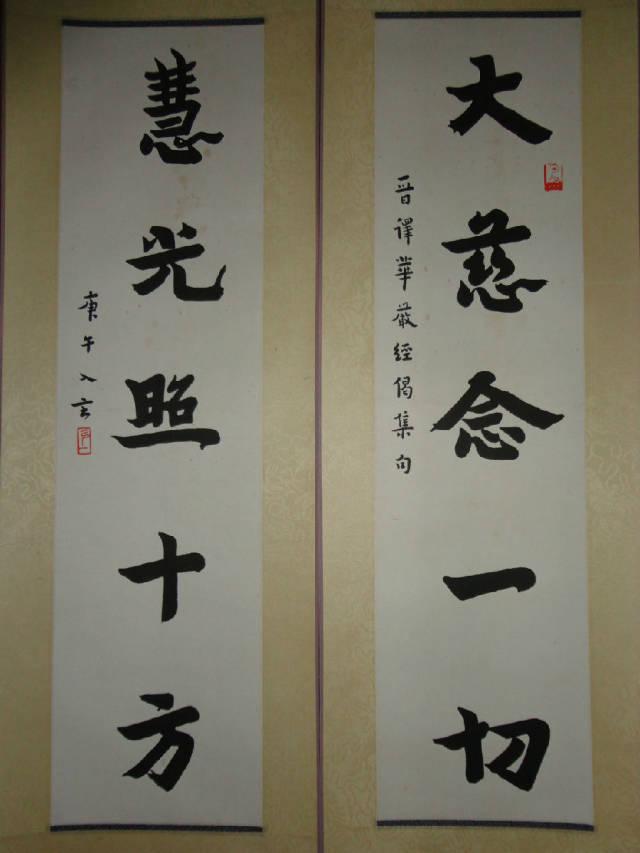 大慈念一切
晋譯華嚴經偈集句
慧光照十方
庚午入玄